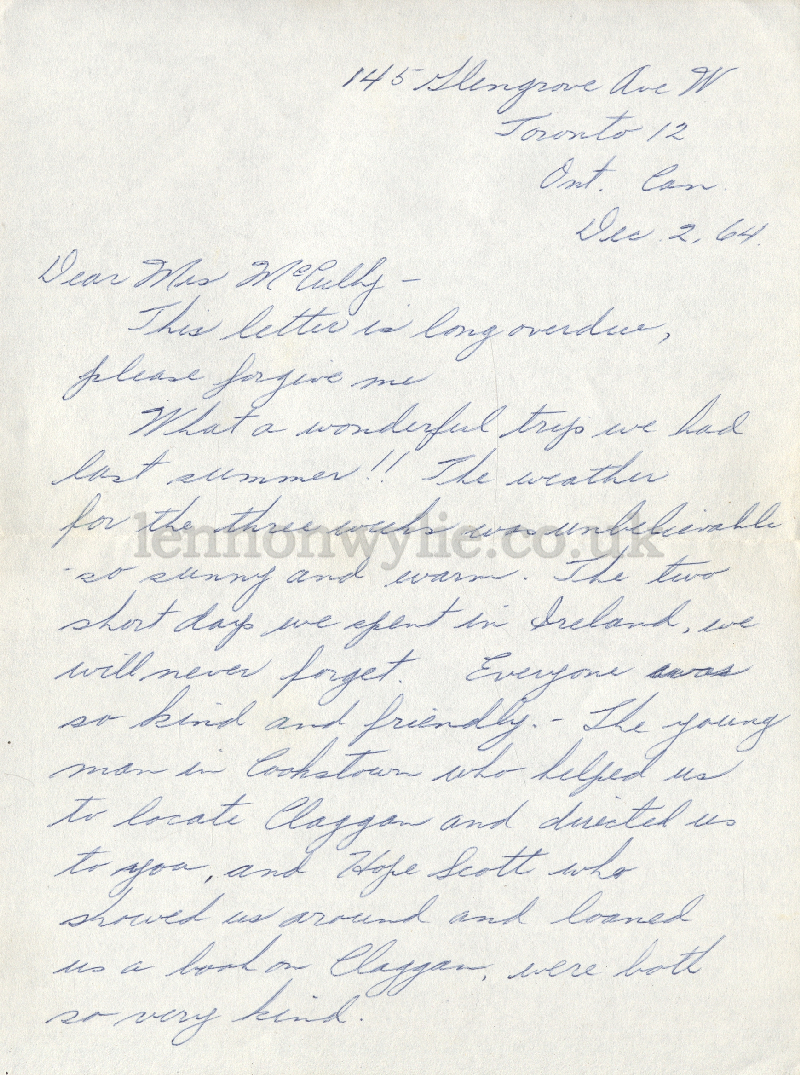 145 Glengrove Ave W
Toronto 12
Ont. Can.
Dec. 2, 64.
Dear Mrs McCully -
This letter is long overdue,
please forgive me
What a wonderful trip we had
last summer!! The weather
for the three weeks was unbelievable
lennonwylie.co.uk
- so sunny and warm. The two
short days we spent in Ireland, we
will never forget. Everyone was
so kind and friendly. - The young
man in Cookstown who helped us
to locate Claggan and directed us
to you, and Hope Scott who
showed us around and loaned
us a book on Claggan, were both
so very kind.